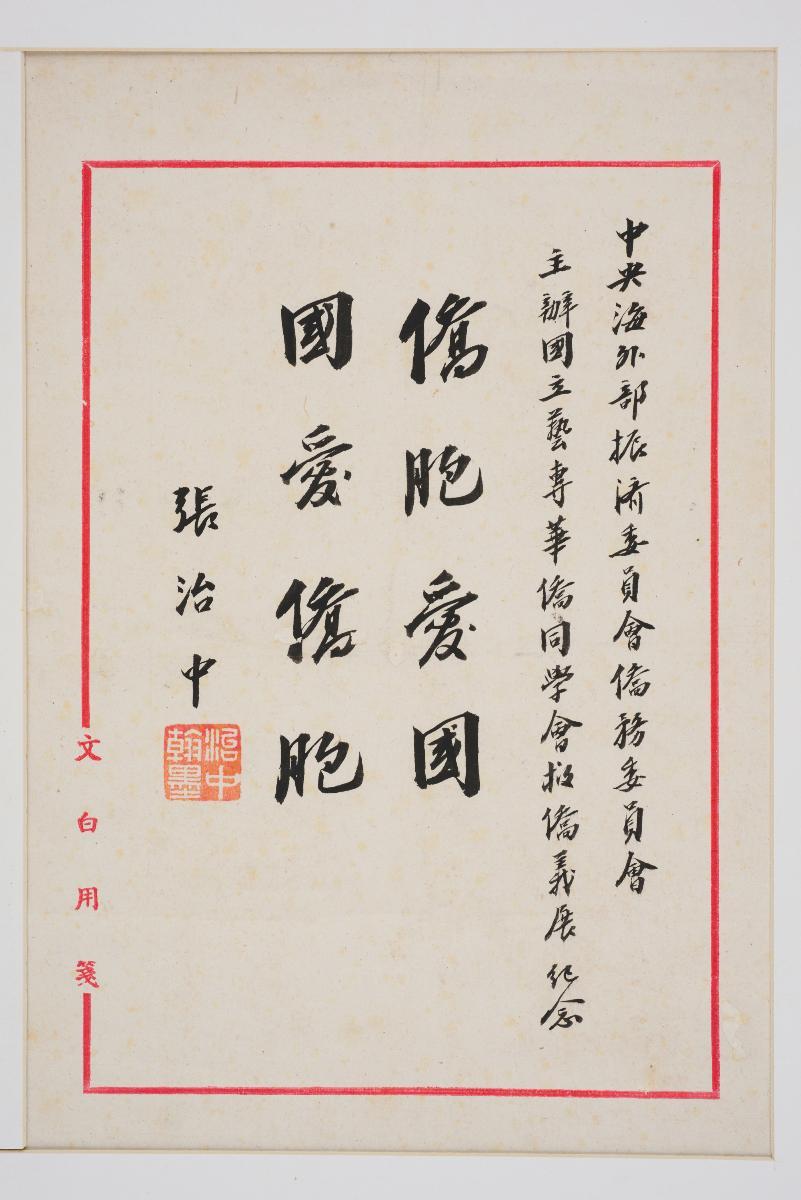 中央海外部振济委員會僑務委員會
主辦國立藝專華僑同學會救僑義展紀念
僑胞愛國
國愛僑胞
張治中
治中翰墨
文白用箋